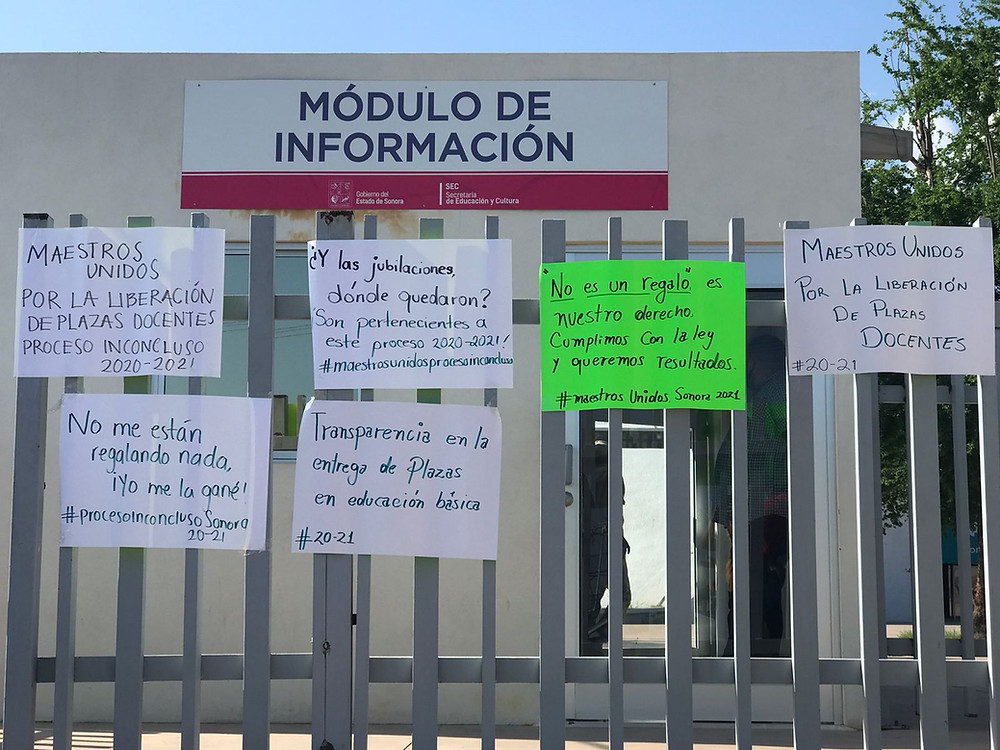 MÓDULO DE
INFORMACIÓN
Gobierno del
Estado de Sonora
SEC
Secretaría
de Educación y Cultura
MAESTROS
UNIDOS
POR LA LIBERACIÓN
DE PLAZAS DOCENTES
PROCESO INCONCLUSO
2020-2021
¿Y las jubilaciones,
dónde quedaron?
¡Son pertenecientes a
este proceso 2020-2021!
#maestrosunidosprocesoinconcluso
"No es un regalo" es
nuestro derecho.
Cumplimos con la ley
y queremos resultados.
#maestros Unidos Sonora 2021
MAESTROS UNIDOS
POR LA LIBERACIÓN
DE PLAZAS
DOCENTES
#20-21
No me están
regalando nada,
¡Yo me la gané!
#procesoInconcluso Sonora
20-21
Transparencia en la
entrega de Plazas
en educación básica
#20-21